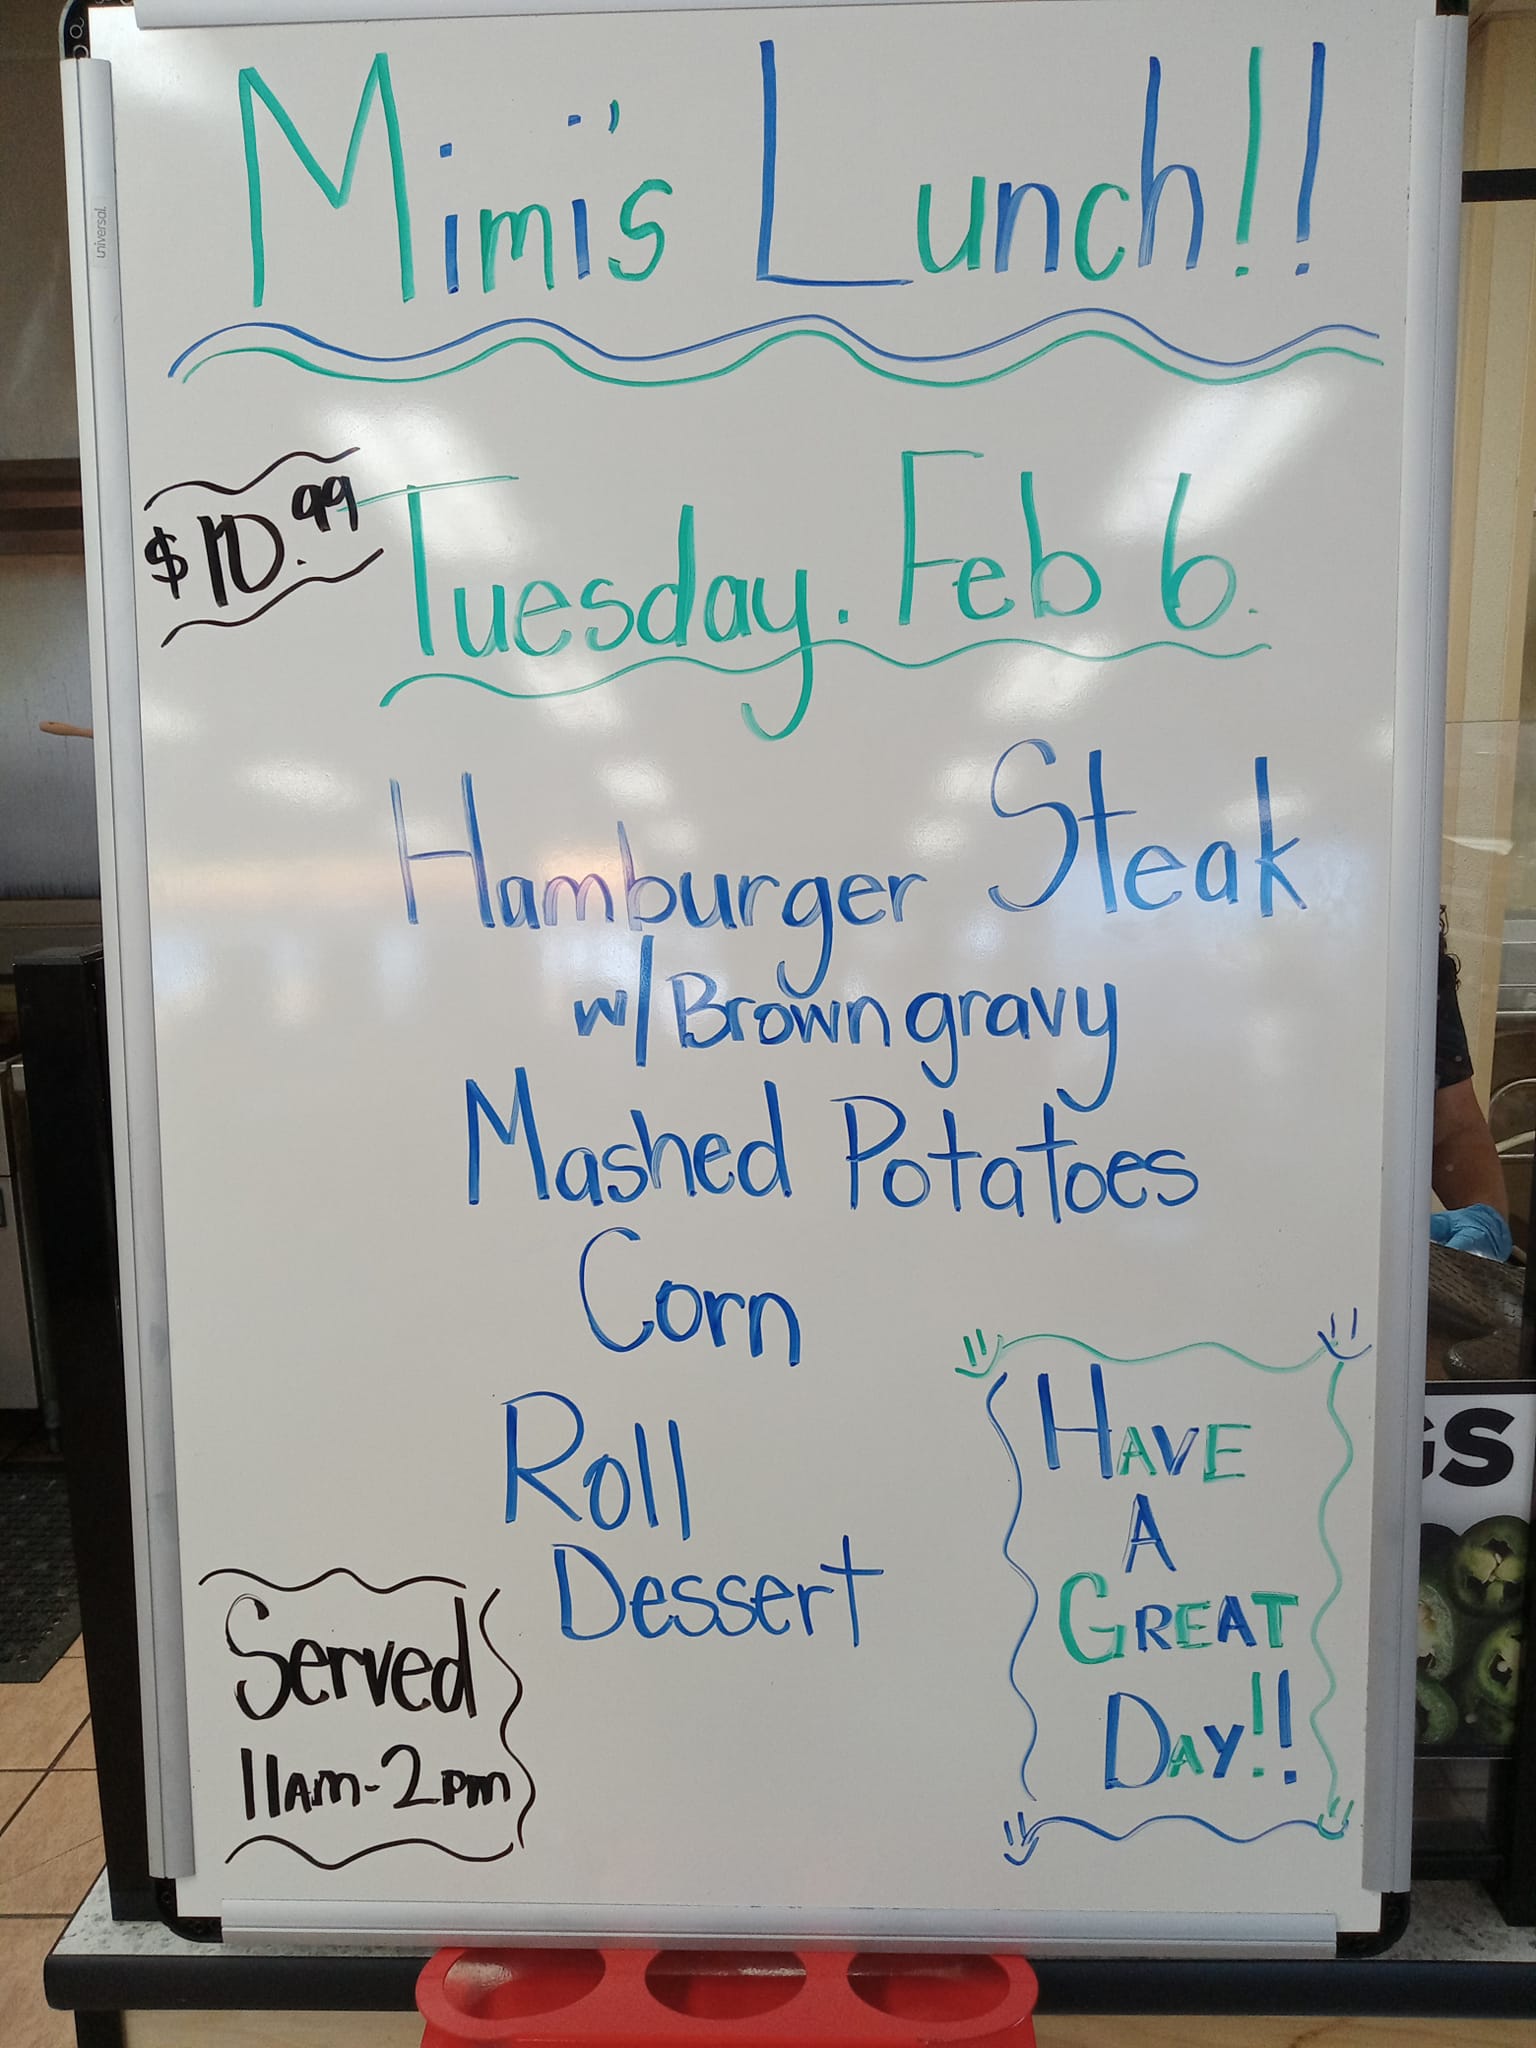 Mimi's Lunch!!
$10.99
Tuesday. Feb 6.
Hamburger Steak
w/ Brown gravy
Mashed Potatoes
Corn
Roll
Dessert
Served
11am-2pm
HAVE
A
GREAT
DAY!!
universal
GS